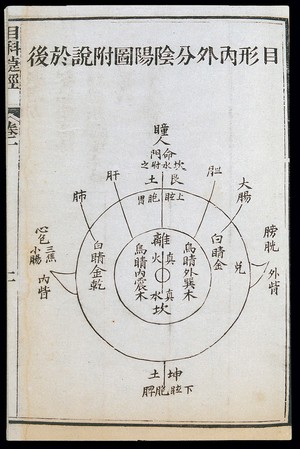 目形內外分陰陽圖附說於後
目科捷徑
卷二
二
瞳人
命門
坎水附之
艮土
上眩胞胃
胆
大腸
肝
肺
膀胱
外眥
心包
三焦
小腸
內眥
兌
白睛金
烏睛外巽木
離
真火
真水
坎
烏睛內震木
白睛金乾
坤土
下眩胞脾